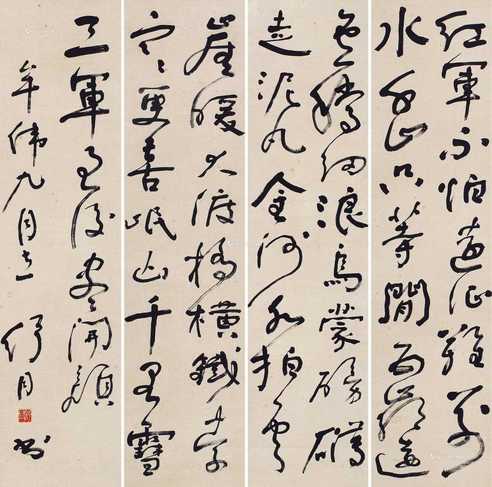 紅軍不怕遠征難萬
水千山只等閒五嶺逶
迤騰細浪烏蒙磅礴
走泥丸金沙水拍雲
崖暖大渡橋橫鐵索
寒更喜岷山千里雪
三軍過後盡開顏
九月